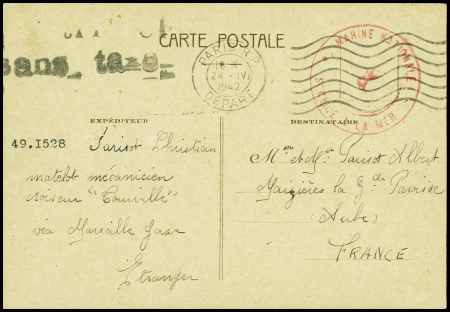 CARTE POSTALE
sans taxe
PARIS R.P.
18 X
24 - IV
1942
DEPART
MARINE NATIONALE
LA MER
EXPÉDITEUR
DESTINATAIRE
49.1528 Parisot Christian
matelot mécanicien
croiseur "Tourville"
via Marseille Gare
Etranger
Mr et Mme Parisot Albert
Maizières la Gde Paroisse
(Aube)
FRANCE